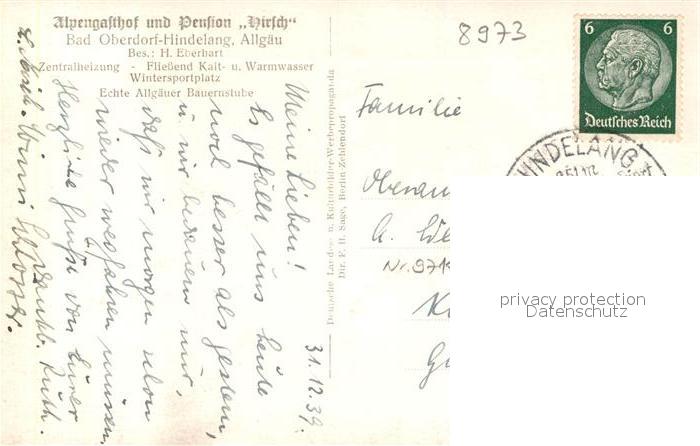 Alpengasthof und Pension „Hirsch“
Bad Oberdorf-Hindelang, Allgäu
Bes.: H. Eberhart
Zentralheizung - Fließend Kalt- u. Warmwasser
Wintersportplatz
Echte Allgäuer Bauernstube
31.12.39.
Meine Lieben!
Es gefällt uns heute
noch besser als gestern,
u. wir bedauern nur,
daß wir morgen schon
wieder wegfahren müssen,
Herzliche Grüße von Eurer
dankb. Ruth.
Deutsche Landes- u. Kulturbilder-Werbepropaganda
Dir. F. H. Sage, Berlin-Zehlendorf
8973
6 6
Deutsches Reich
HINDELANG
Familie
Nr. 971
privacy protection
Datenschutz